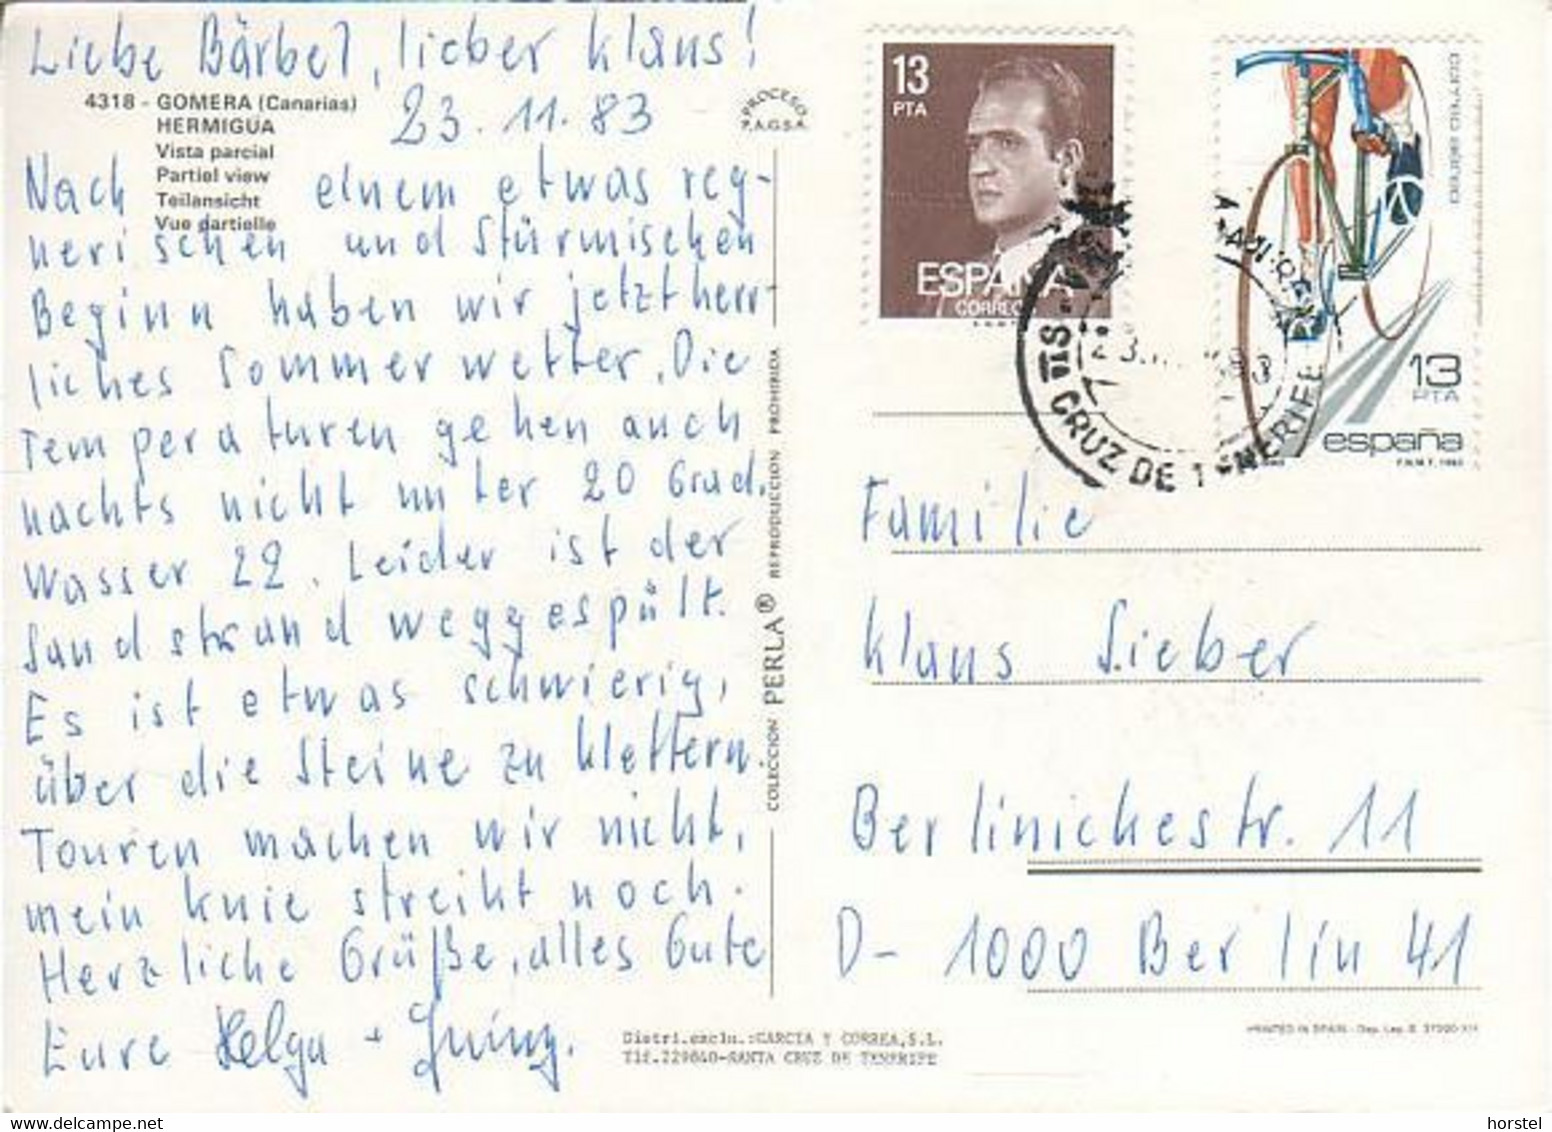 Liebe Bärbel, lieber Klaus!
4318 - GOMERA (Canarias)
HERMIGUA
Vista parcial
Partiel view
Teilansicht
Vue partielle
23.11.83
Nach einem etwas reg-
nerischen und stürmischen
Beginn haben wir jetzt herr-
liches Sommerwetter. Die
Temperaturen gehen auch
nachts nicht unter 20 Grad.
Wasser 22. Leider ist der
Sandstrand weggespült.
Es ist etwas schwierig,
über die Steine zu klettern.
Touren machen wir nicht,
mein Knie streikt noch.
Herzliche Grüße, alles Gute
Eure Helga +
PROCESO
F.A.G.S.A.
COLECCION PERLA® REPRODUCCION PROHIBIDA
Distri.exclu.:GARCIA Y CORREA,S.L.
Tlf.229840-SANTA CRUZ DE TENERIFE
13
PTA
ESPAÑA
CORREOS
13
PTA
españa
F.N.M.T. 1983
STA CRUZ DE TENERIFE
Familie
Klaus Sieber
Berlinickestr. 11
D- 1000 Berlin 41
PRINTED IN SPAIN - Dep. Leg. B.
horstel